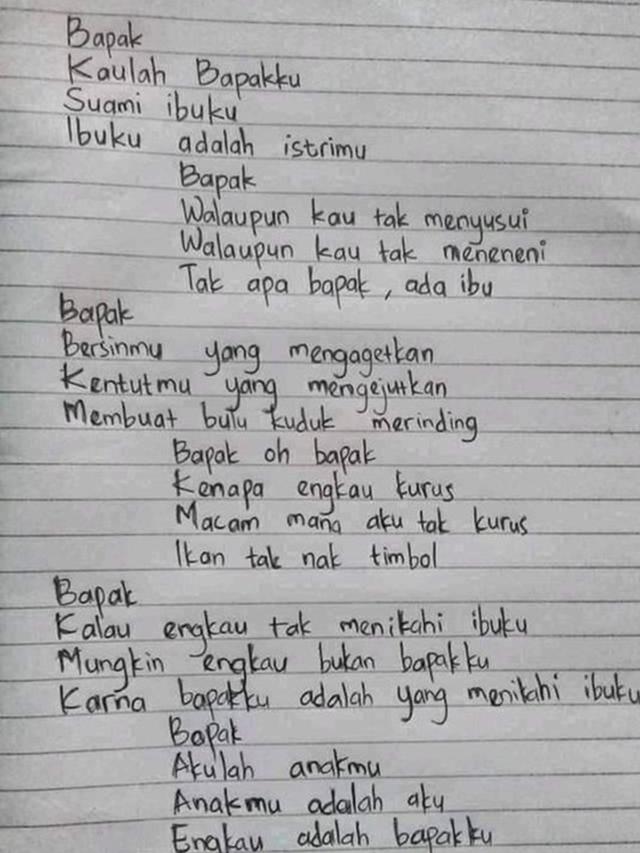 Bapak
Kaulah Bapakku
Suami ibuku
Ibuku adalah istrimu
Bapak
Walaupun kau tak menyusui
Walaupun kau tak meneneni
Tak apa bapak, ada ibu
Bapak
Bersinmu yang mengagetkan
Kentutmu yang mengejutkan
Membuat bulu kuduk merinding
Bapak oh bapak
Kenapa engkau kurus
Macam mana aku tak kurus
Ikan tak nak timbol
Bapak
Kalau engkau tak menikahi ibuku
Mungkin engkau bukan bapakku
Karna bapakku adalah yang menikahi ibuku
Bapak
Akulah anakmu
Anakmu adalah aku
Engkau adalah bapakku